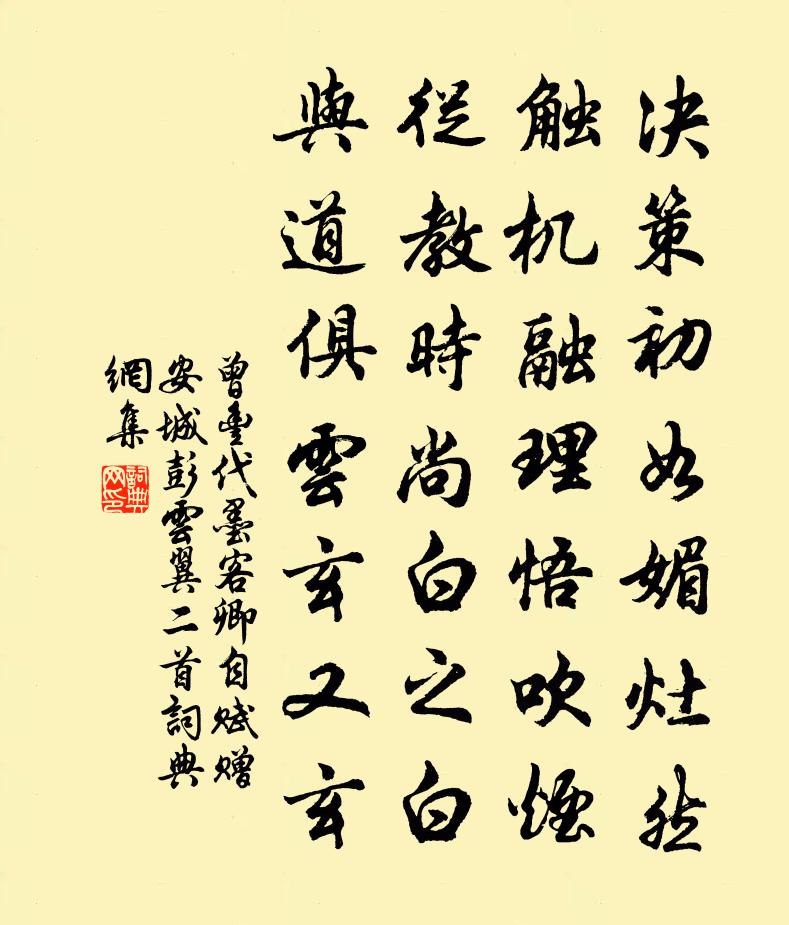 决策初如媚灶然
触机融理悟吹烟
從教時尚白之白
與道俱雲玄又玄
曾豐代墨客卿自赋赠
安城彭雲翼二首詞典
網集
詞典網印